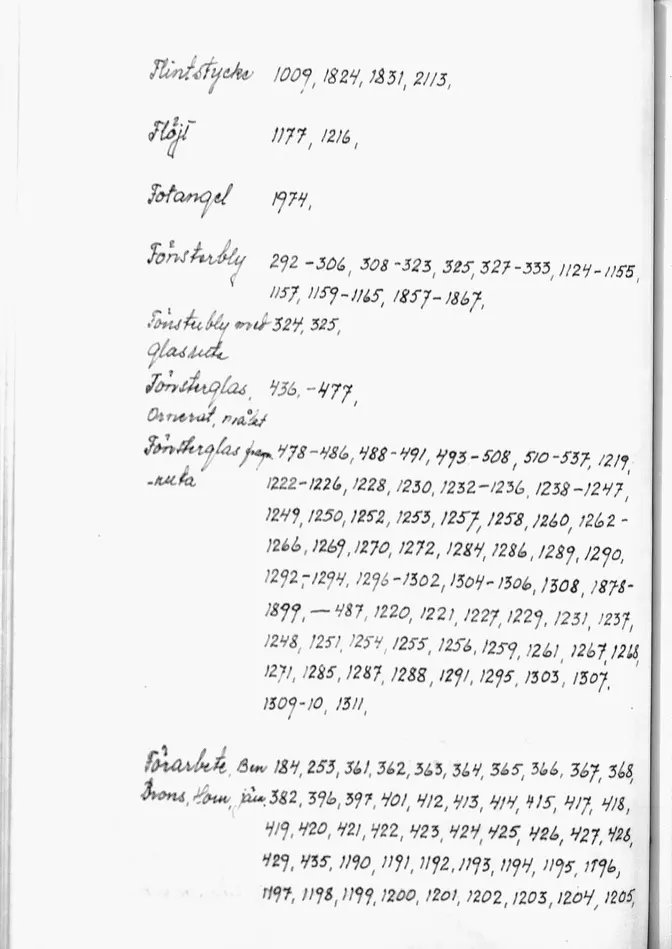 Flintstycke 1009, 1824, 1831, 2113,
Flöjt 1177, 1216,
Fotangel 1974,
Fönsterbly 292-306, 308-323, 325, 327-333, 1124-1155,
1157, 1159-1165, 1857-1867,
Fönsterbly med 324, 325,
glasruta
Fönsterglas, 436,-477,
Ornerat, målat
Fönsterglas fragm. 478-486, 488-491, 493-508, 510-537, 1219,
-ruta 1222-1226, 1228, 1230, 1232-1236, 1238-1247,
1249, 1250, 1252, 1253, 1257, 1258, 1260, 1262-
1266, 1269, 1270, 1272, 1284, 1286, 1289, 1290,
1292,-1294, 1296-1302, 1304-1306, 1308, 1878-
1899, — 487, 1220, 1221, 1227, 1229, 1231, 1237,
1248, 1251, 1254, 1255, 1256, 1259, 1261, 1267, 1268,
1271, 1285, 1287, 1288, 1291, 1295, 1303, 1307,
1309-10, 1311,
Förarbete, Ben 184, 253, 361, 362, 363, 364, 365, 366, 367, 368,
Brons, Horn, järn 382, 396, 397, 401, 412, 413, 414, 415, 417, 418,
419, 420, 421, 422, 423, 424, 425, 426, 427, 428,
429, 435, 1190, 1191, 1192, 1193, 1194, 1195, 1196,
1197, 1198, 1199, 1200, 1201, 1202, 1203, 1204, 1205,